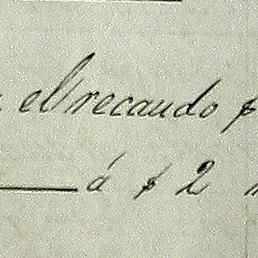 el recaudo
á $ 2